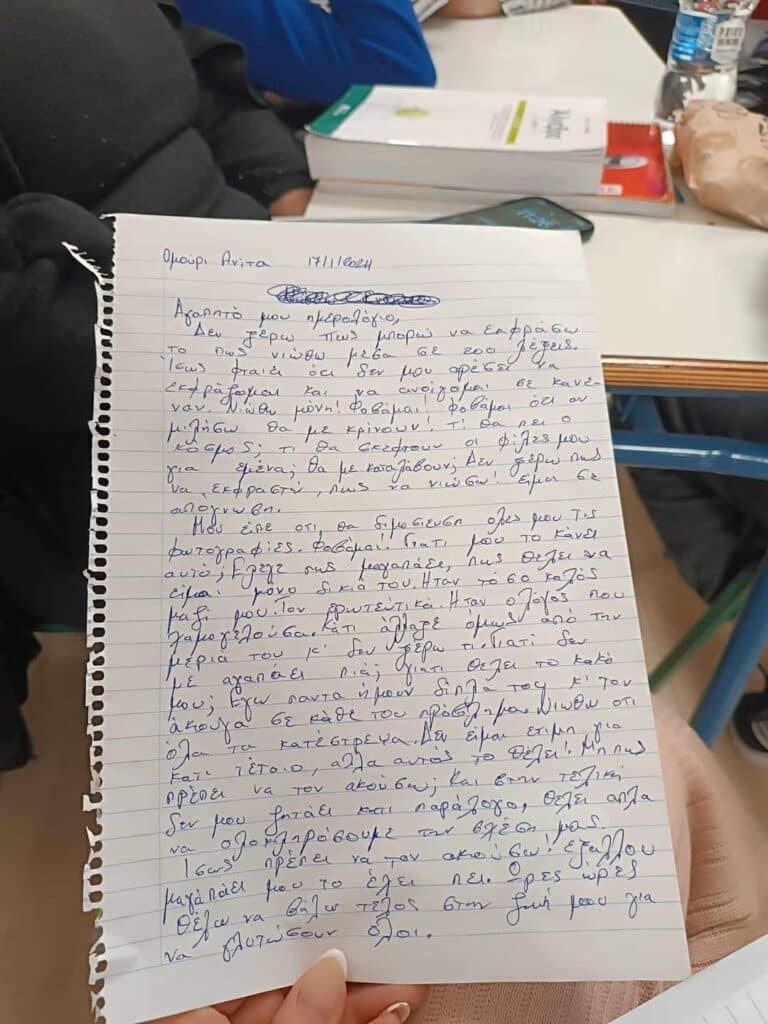 Ομούρι Ανίτα 17/1/2024
Αγαπητό μου ημερολόγιο,
Δεν ξέρω πως μπορώ να εκφράσω
το πως νιώθω μέσα σε 200 λέξεις.
Ίσως φταίει ότι δεν μου αρέσει να
εκφράζομαι και να ανοίγομαι σε κανέ-
ναν. Νιώθω μόνη! Φοβάμαι! Φοβάμαι ότι αν
μιλήσω θα με κρίνουν! Τι θα πει ο
κόσμος; τι θα σκεφτουν οι φίλες μου
για εμένα; θα με καταλάβουν; Δεν ξέρω πως
να εκφραστώ, πως να νιώσω! είμαι σε
απόγνωση.
Μου είπε οτι θα διμοσιευση ολες μου τις
φωτογραφίες. Φοβάμαι! Γιατι μου το κάνει
αυτό; Ελεγε πως μαγαπάει, πως θέλει να
είμαι μόνο δικιά του. Ήταν τόσο καλός
μαζί μου. Τον ερωτεύτικα. Ήταν ο λόγος που
χαμογελούσα. Κάτι άλλαξε όμως από την
μεριά του κ' δεν ξέρω τι. Γιατί δεν
με αγαπάει πιά; γιατι θέλει το κακό
μου; Εγω παντα ήμουν δίπλα του κ' τον
άκουγα σε κάθε του πρόβλημα. Νιώθω οτι
όλα τα κατέστρεψα. Δεν είμαι ετιμη για
κατι τέτοιο, αλλα αυτός το θέλει! Μηπως
πρέπει να τον ακούσω; Και στην τελική
δεν μου ζητάει κατι παράλογο, θέλει απλα
να ολοκληρόσουμε την σχέση μας.
Ίσως πρέπει να τον ακούσω! εξαλλου
μαγάπάει μου το έχει πει. Ώρες ώρες
θέλω να βάλω τέλος στην ζωή μου για
να γλυτώσουν όλοι.
Άλγεβρα